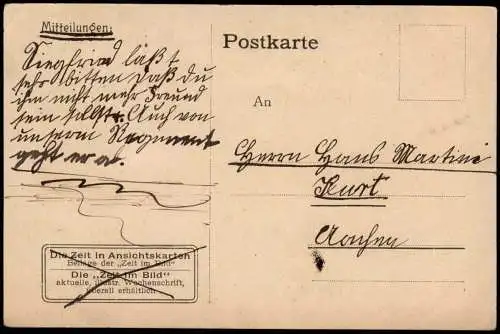 Mitteilungen:
Siegfried läßt
sehr bitten daß du
ihm nicht mehr Freund
sein sollst. Auch von
unserm Regiment
geht er a.
Postkarte
An
Herrn Hans Martini
Kurt
Aachen
Die Zeit in Ansichtskarten
Beilage der „Zeit im Bild"
Die „Zeit im Bild"
aktuelle, illustr. Wochenschrift,
überall erhältlich